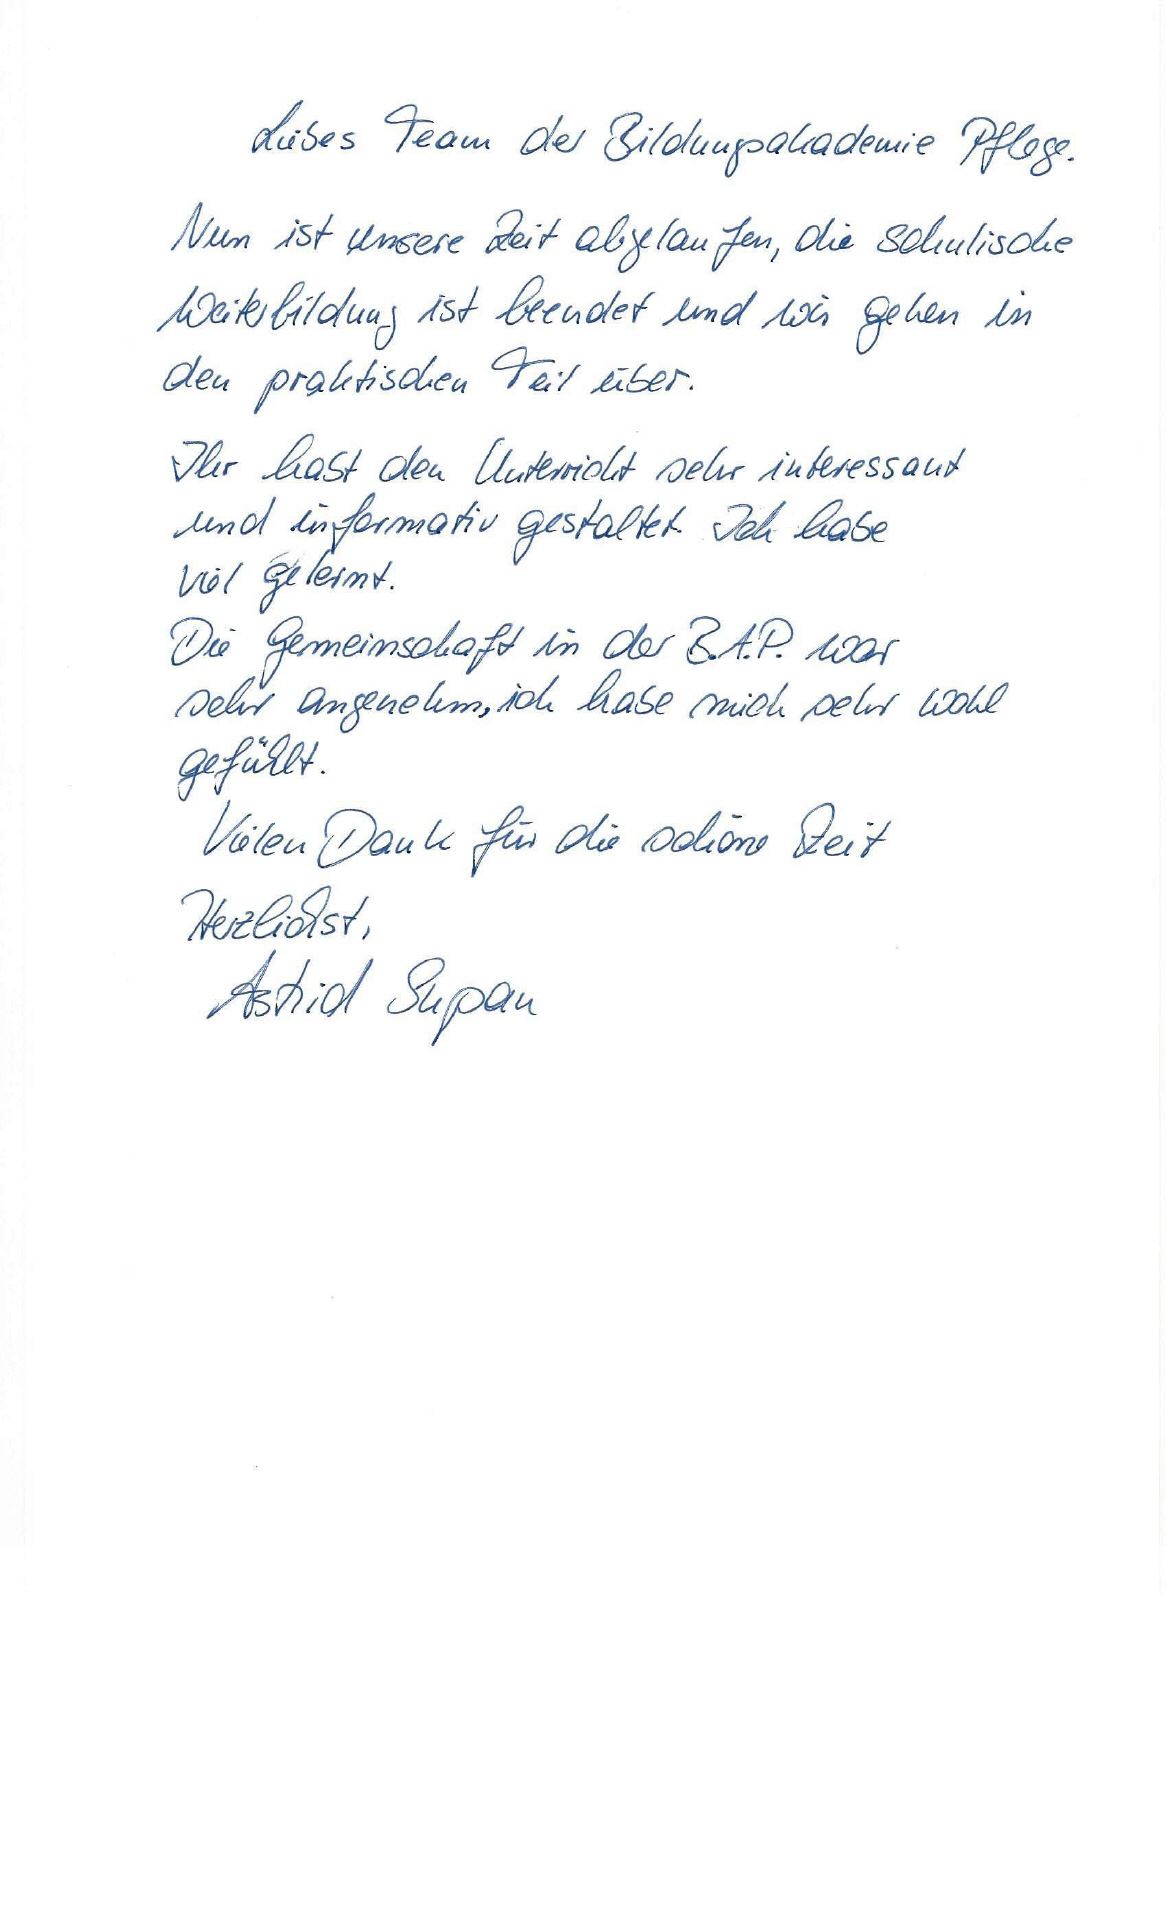 Liebes Team der Bildungsakademie Pflege.
Nun ist unsere Zeit abgelaufen, die schulische
Weiterbildung ist beendet und wir gehen in
den praktischen Teil über.
Ihr habt den Unterricht sehr interessant
und informativ gestaltet. Ich habe
viel gelernt.
Die Gemeinschaft in der B.A.P. war
sehr angenehm, ich habe mich sehr wohl
gefühlt.
Vielen Dank für die schöne Zeit
Herzlichst,
Astrid Supan